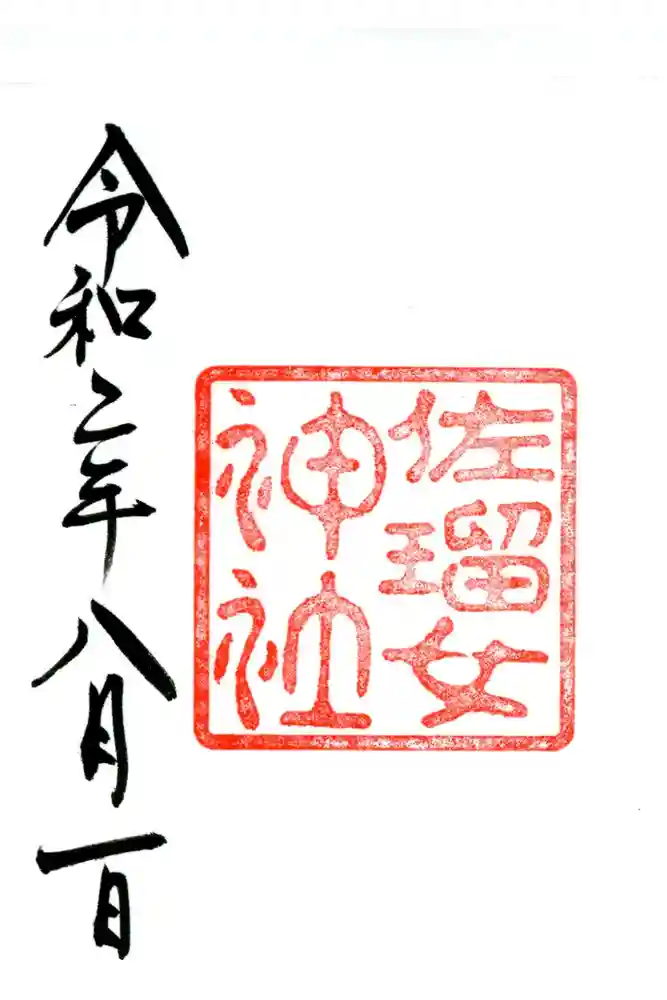 佐瑠女
神社
令和二年八月一日